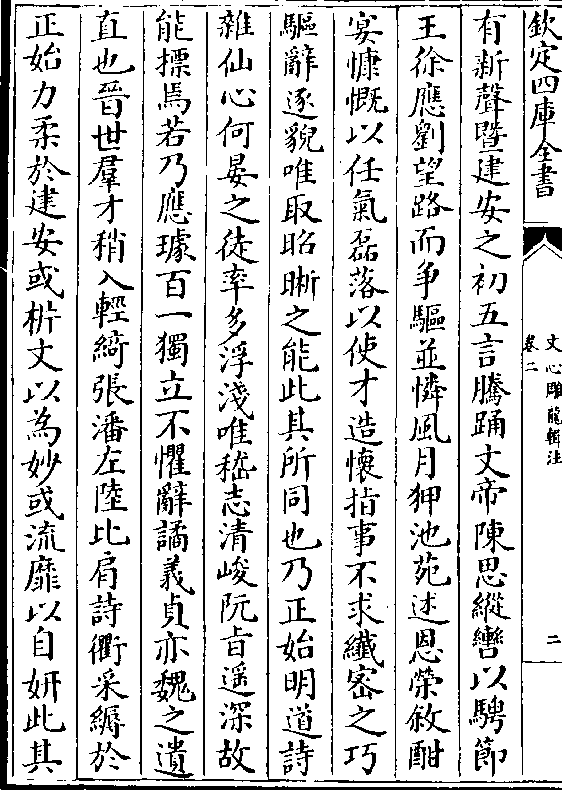 欽定四庫全書
文心雕龍輯注
卷二
二
有新聲暨建安之初五言騰踊文帝陳思縱轡以騁節
王徐應劉望路而爭驅並憐風月狎池苑述恩榮敘酣
宴慷慨以任氣磊落以使才造懷指事不求纎宻之巧
驅辭逐貌唯取昭晣之能此其所同也乃正始明道詩
雜仙心何晏之徒率多浮淺唯嵇志清峻阮旨遥深故
能摽焉若乃應璩百一獨立不懼辭譎義貞亦魏之遺
直也晉世羣才稍入輕綺張潘左陸比肩詩衢采縟於
正始力柔於建安或枿文以為妙或流靡以自妍此其